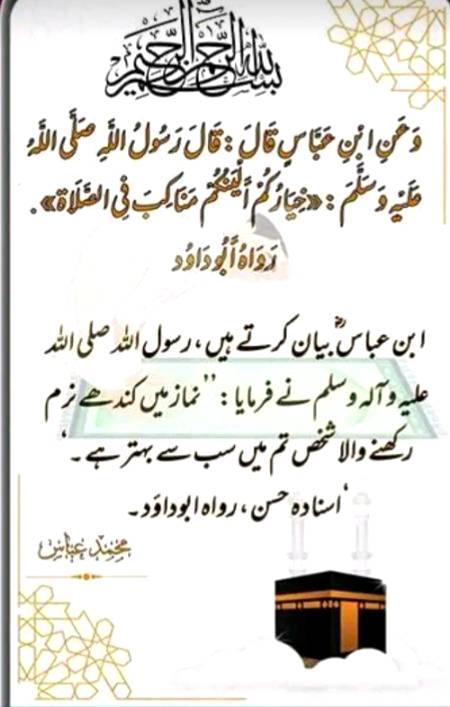 بسم الله الرحمن الرحيم
وَعَنِ ابْنِ عَبَّاسٍ قَالَ : قَالَ رَسُولُ اللَّهِ صَلَّى اللَّهُ
عَلَيْهِ وَسَلَّمَ : «خِيَارُكُمْ أَلْيَنُكُمْ مَنَاكِبَ فِي الصَّلَاةِ» .
رَوَاهُ أَبُو دَاوُد
ابن عباسؓ بیان کرتے ہیں ، رسول اللہ صلی اللہ
علیہ وآلہ وسلم نے فرمایا : ’’نماز میں کندھے نرم
رکھنے والا شخص تم میں سب سے بہتر ہے ۔‘
‘اسنادہ حسن ، رواہ ابوداؤد ۔
محمد عباس